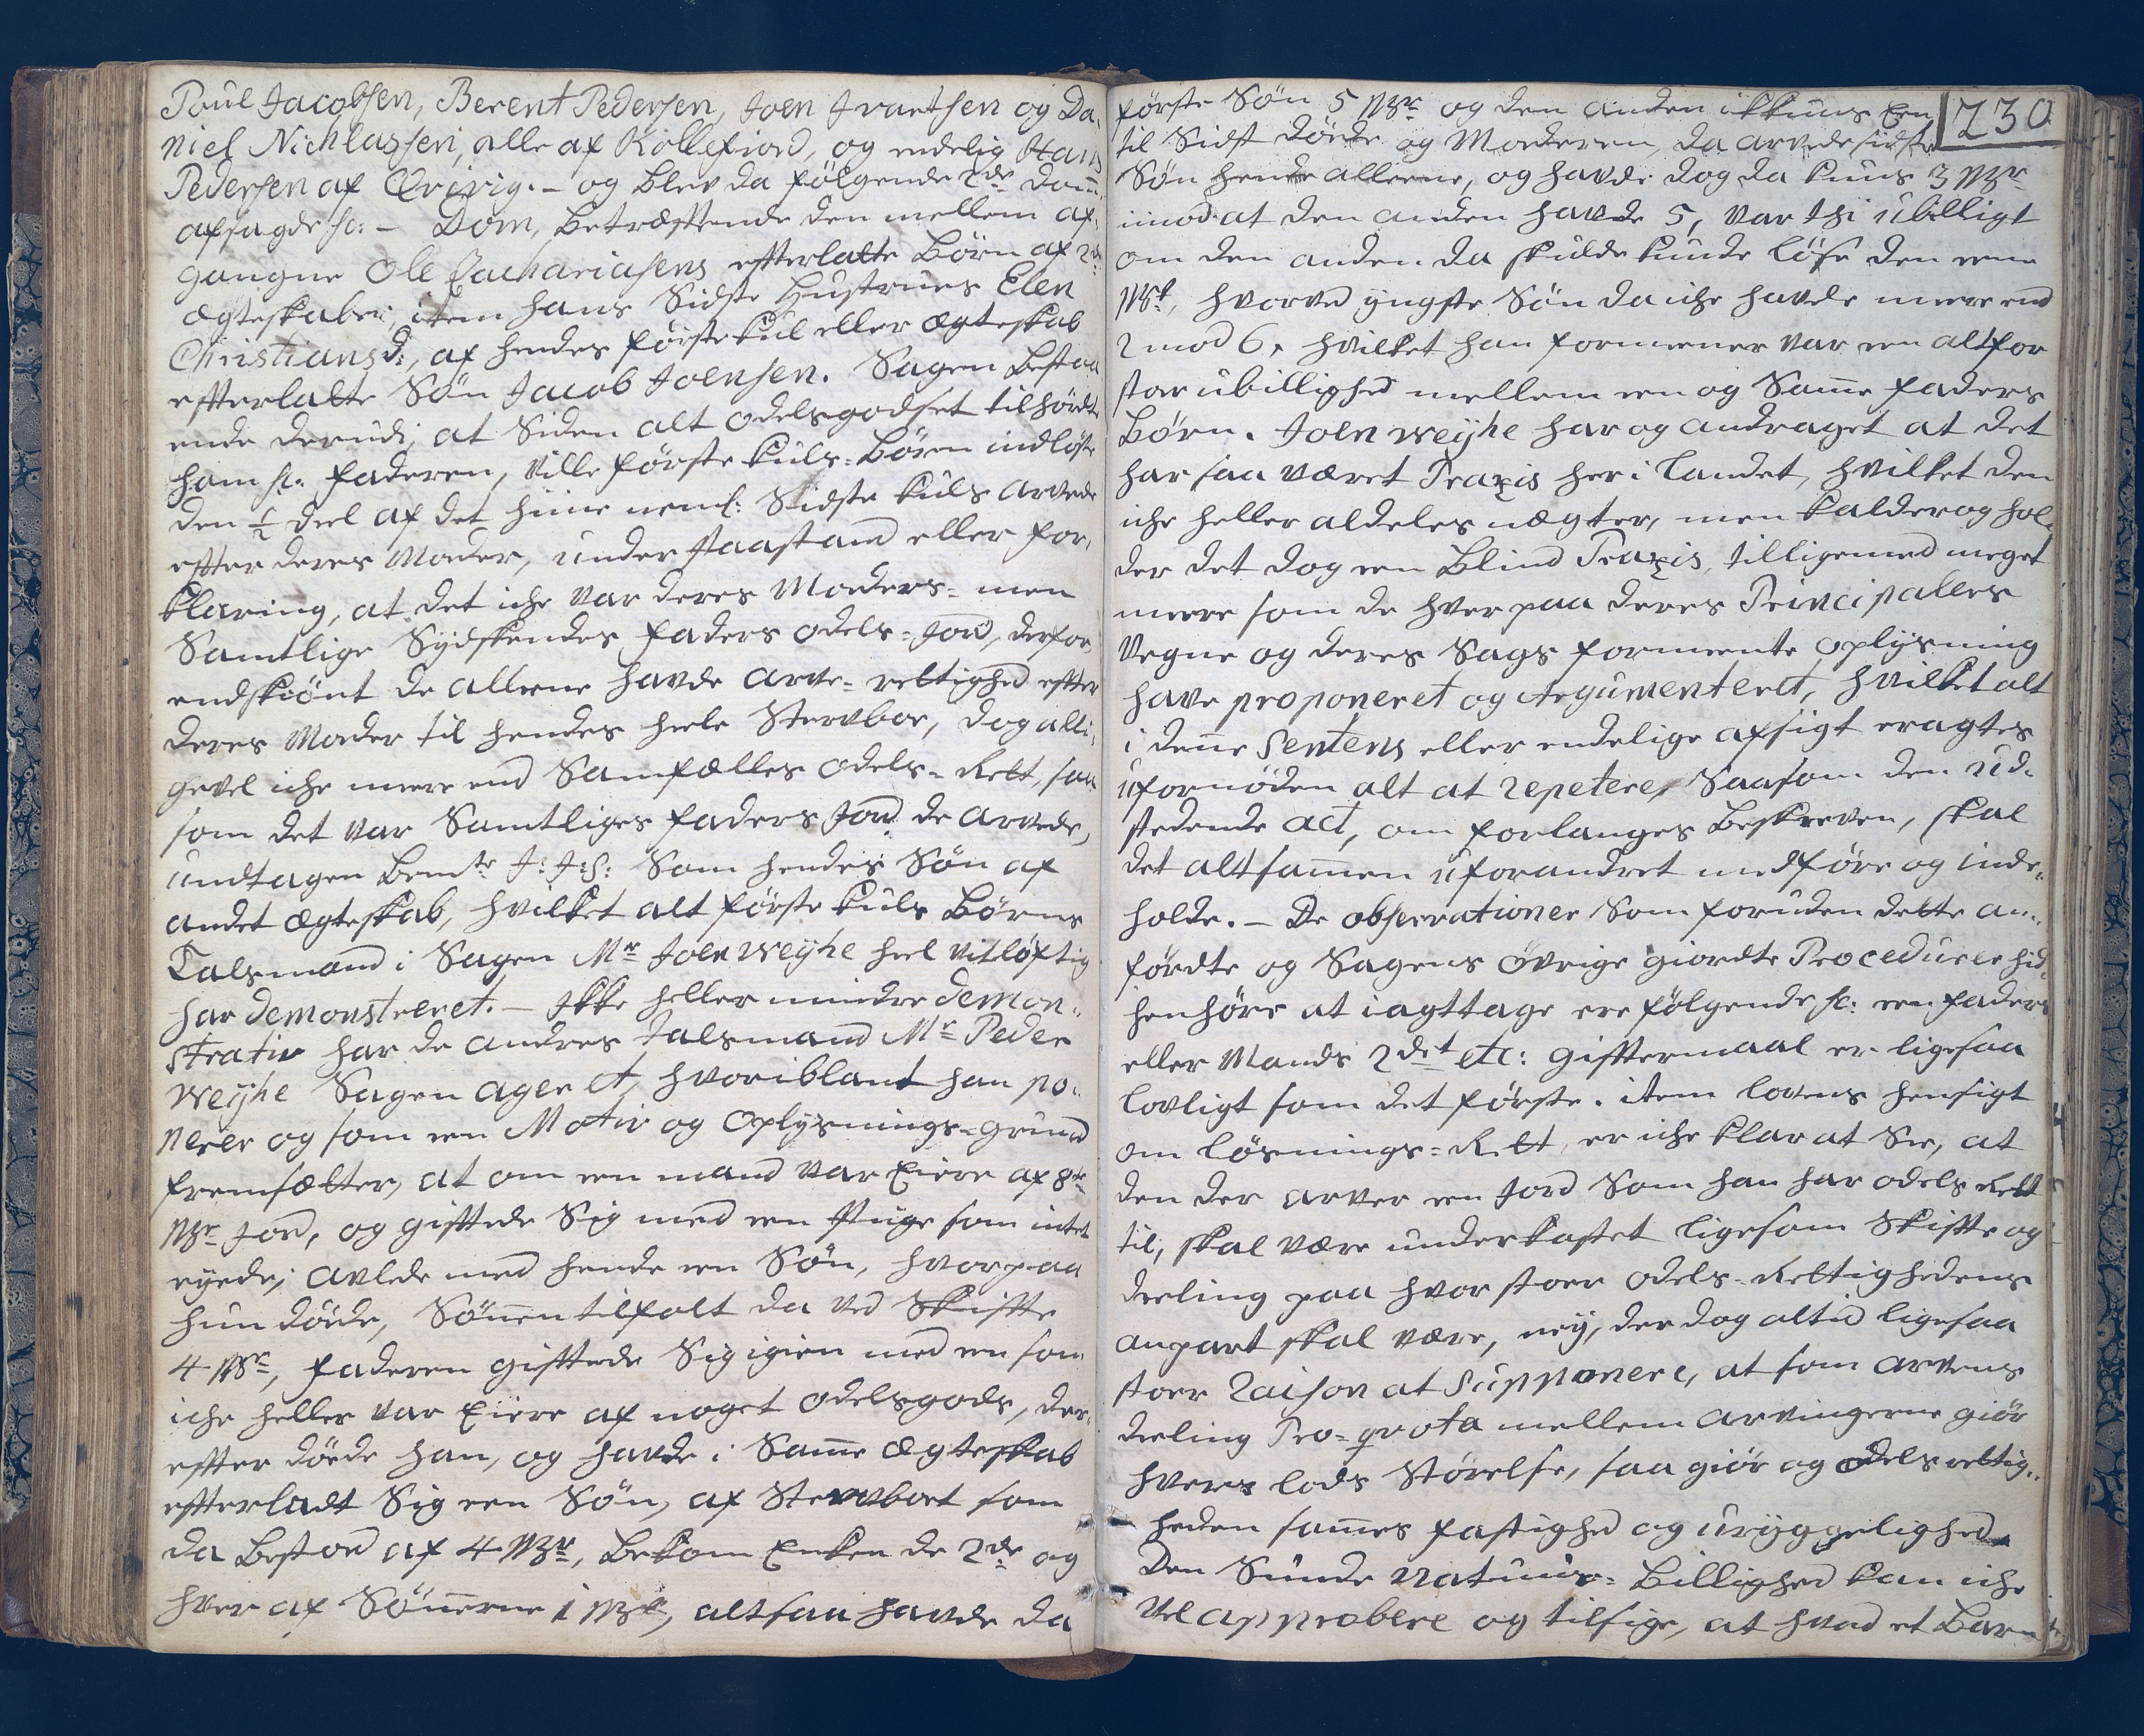 Poul Jacobsen, Berent Pedersen, Joen Ivartsen og Da-
niel Nichlassen, alle af Kollefiord, og endelig Hans
Pedersen af Qvivig. – og blev da følgende 2de Domme
afsagde sc: – Dom, betræffende den mellem af-
gangne Ole Zachariasens efterlatte Børn af 2de
Ægteskaber, item hans Sidste Hustrues Elen
Christiansd:, af hendes første kul eller Ægteskab
efterlatte Søn Jacob Joensen. Sagen bestaa-
ende derudi, at Siden alt Odelsgodset tilhørdte
ham sc: Faderen, ville første kuls-Børn indløse
den ½ deel af det hine neml: Sidste kuls arvede
efter deres Moder, under Paastand eller for-
klaring, at det iche var deres Moders- men
Samtlige Sydskendes Faders Odels-Jord, derfor,
endskiønt de alleene havde Arve-rettighed efter
deres Moder til hendes heele Sterboe, dog alli-
gevel iche meere end Samfælles Odels-Rett, saa-
som det var Samtliges Faders Jord de arvede,
undtagen bemte J: J:S: Som hendes Søn af
andet Ægteskab, hvilket alt første kuls Børns
Talsmand i Sagen Mr Joen Weyhe heel vitløftig
har demonstreret. – Ikke heller mindre demon-
strativ har de andres Talsmand Mr Peder
Weyhe Sagen ageret, hvoriblant han po-
nerer og som een Motiv og Oplysnings-grund
fremsætter, at om een mand var Eiere af 8te
Mrk Jord, og giftede Sig med een Pige som intet
eyede, avlede med hende een Søn, hvorpaa
hun døde, Sønnen tilfalt da ved Skifte
4 Mrk, Faderen giftede Sig igien med een som
iche heller var Eiere af noget Odelsgods, der-
efter døde han, og havde i Samme Ægteskab
efterladt Sig een Søn, af Stervboet som
da bestod af 4 Mrk, bekom Enken de 2de og
hver af Sønnerne 1 Mrk, altsaa havde da
230.
første Søn 5 Mrk og den anden ikkuns Een
til Sidst døde og Moderen, da arvede sidste
Søn hende alleene, og havde dog da kuns 3 Mrk
imod at den anden havde 5, var thi ubilligt
om den anden da skulde kunde løse den eene
Mrk, hvorved yngste Søn da iche havde meere end
2 mod 6, hvilket han formeener var een altfor
stor ubillighed mellem een og Samme Faders
Børn. Joen Weyhe har og andraget at det
har saa været Praxis her i Landet, hvilket den
iche heller aldeles nægter, men kalder og hol-
der det dog een blind Praxis, tilligemed meget
meere som de hver paa deres Principalles
Vegne og deres Sags formeente oplysning
have proponeret og Argumenteret, hvilket alt
i denne Sentens eller endelige afsigt eragtes
ufornøden alt at repetere, Saasom den ud-
stedende Act, om forlanges beskreven, skal
det altsammen uforandret medføre og inde-
holde. – De observationer Som foruden dette an-
førdte og Sagens øvrige giordte Procedurer hid-
henhøre at iagttage ere følgende sc: een Faders
eller Mands 2det etc: Giftermaal er ligesaa
lovligt som det første. item Lovens hensigt
om løsnings-Rett, er iche klar at See, at
den der arver een Jord Som han har odels Rett
til, skal være underkastet ligesom Skifte og
deeling paa hvor stoer Odels-Rettighedens
anpart skal være, ney, der dog altid ligesaa
stoer Raison at Supponere, at som Arvens
deeling Pro-qvota mellem arvingerne giør
hvers lods størelse, saa giør og Odels rettig-
heden sammes fastighed og uryggelighed.
Den Sunde Naturs-Billighed kan iche
vel approbere og tilsige, at hvad et Barn